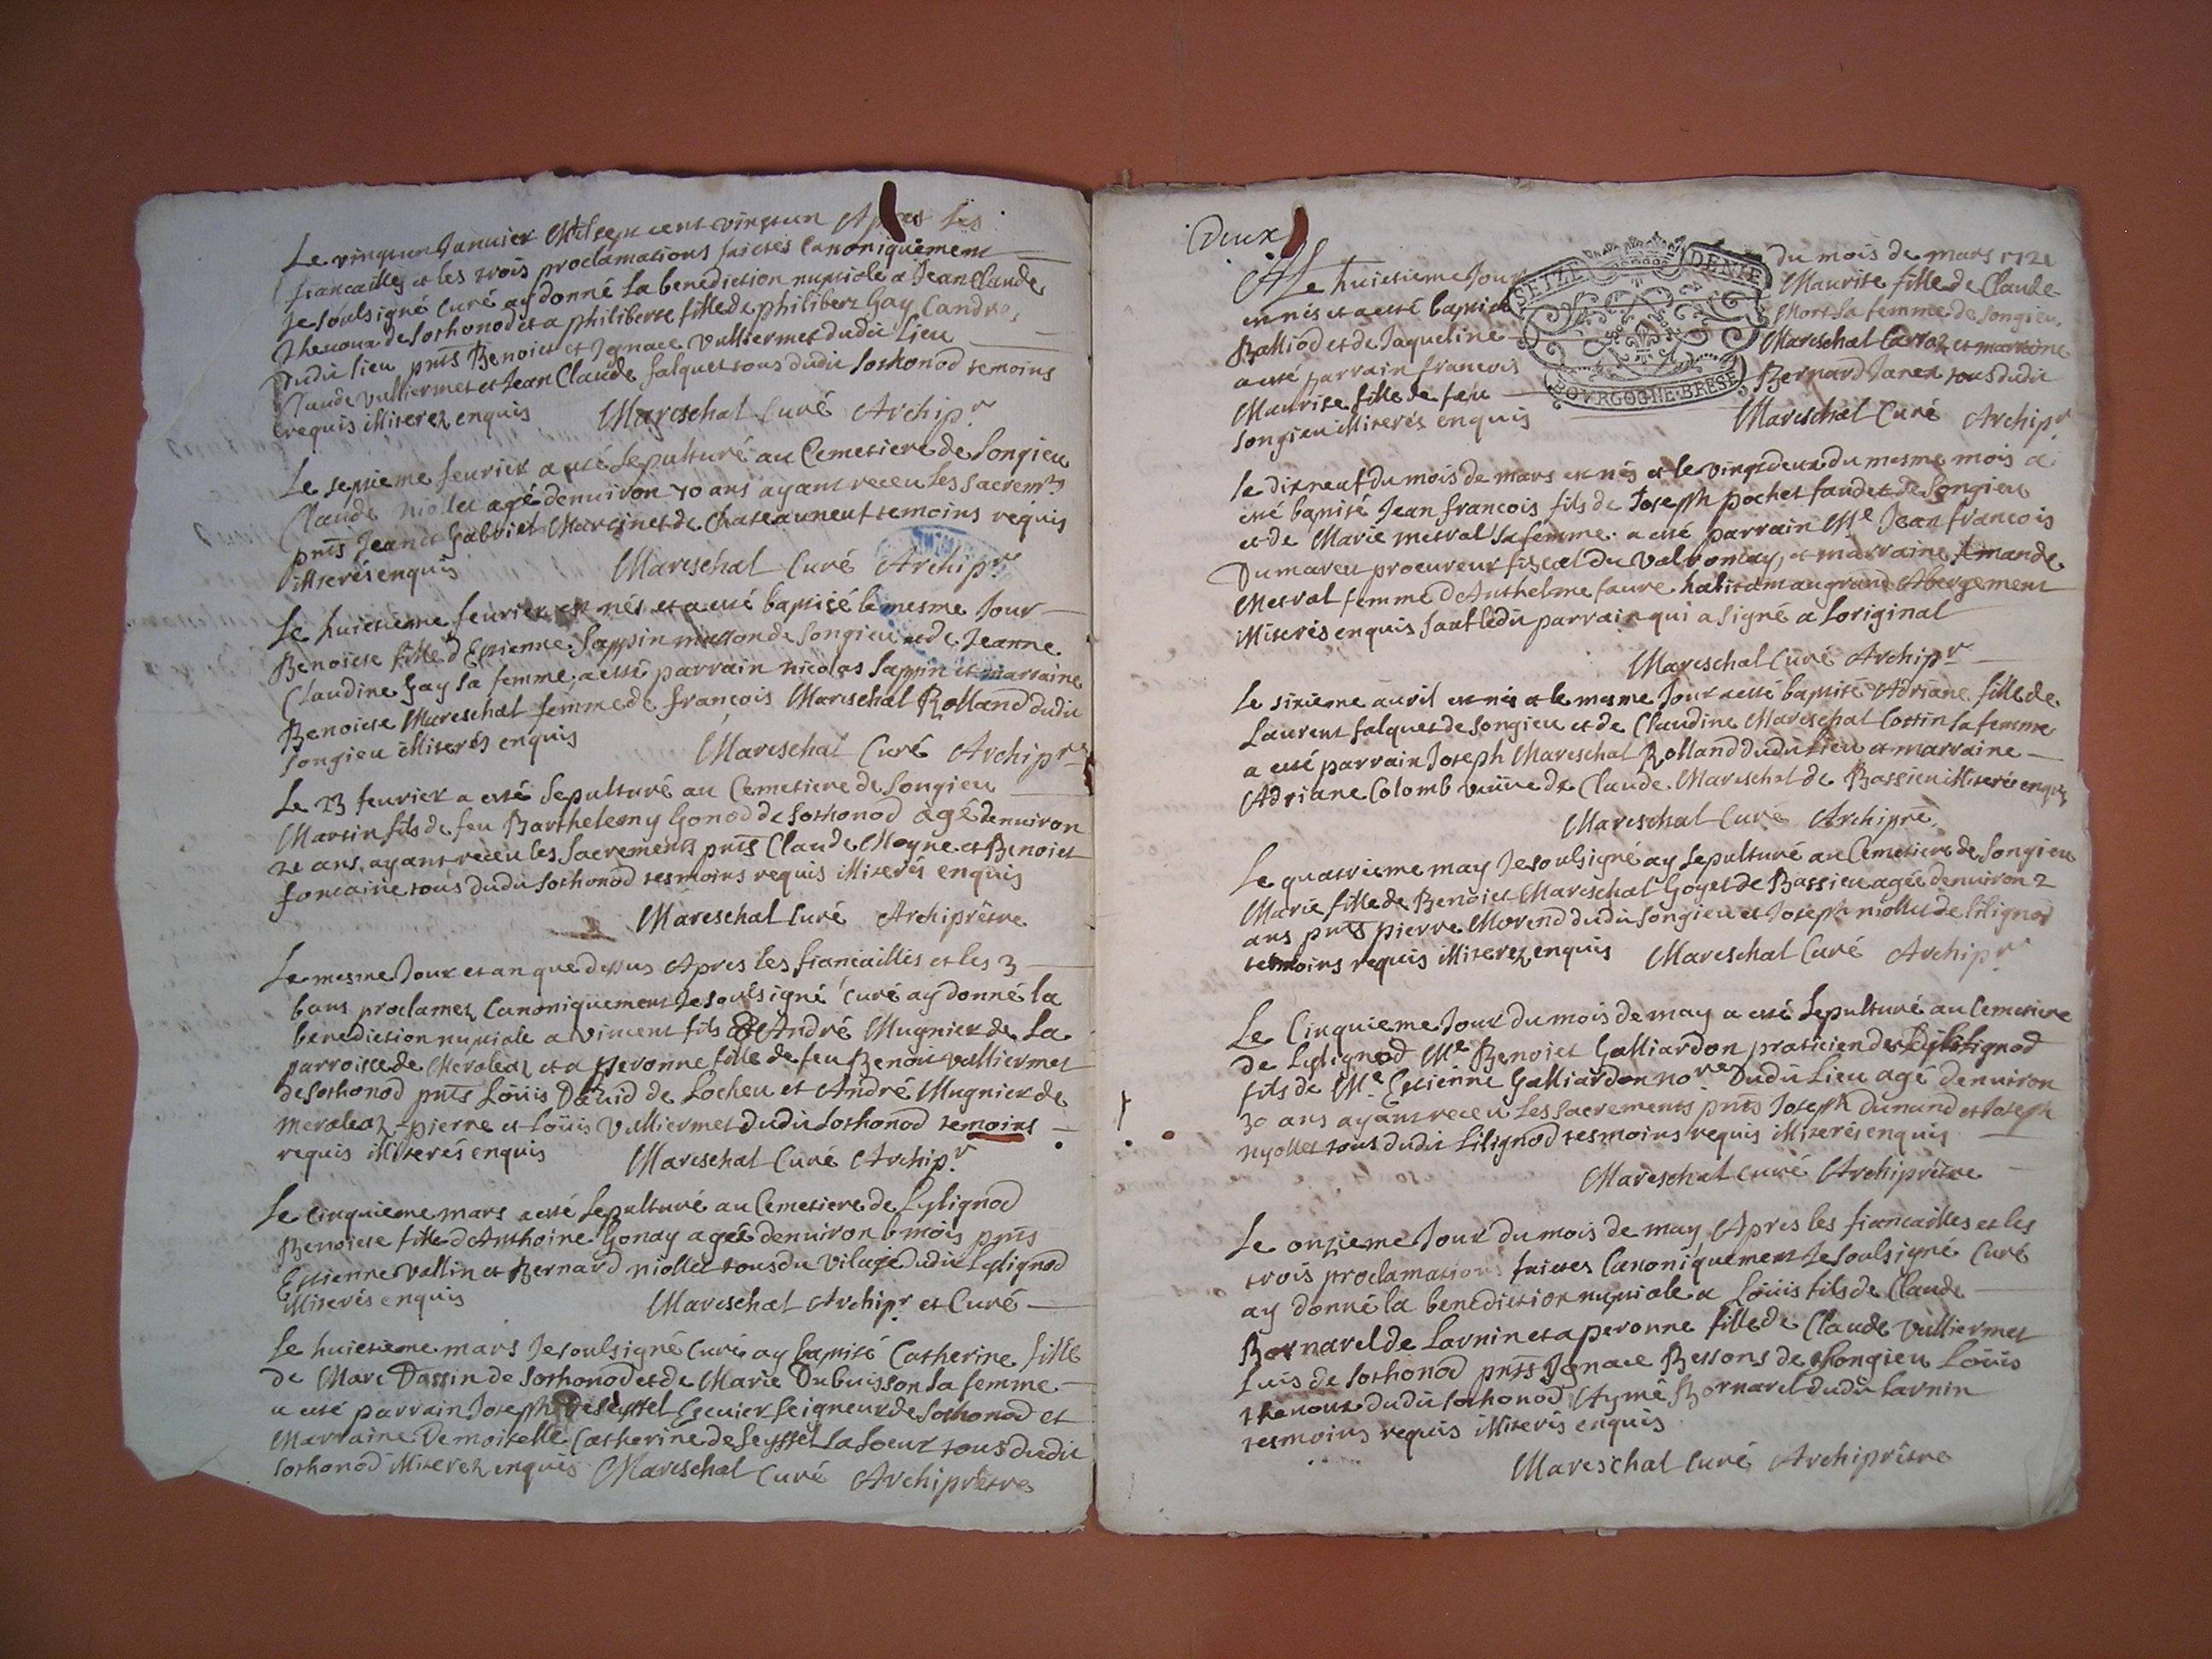 Le vingtun Januier Mil sept cent vingtun Apres les
fiancailles et les trois proclamations faictes Canoniquement
Je soulsigné Curé ay donné la benediction nuptiale a Jean Claude
Thenoux de Sothonod et a philiberte fille de philibert Gay
dudit lieu pnts Benoict et Ignace Vulliermet dudit Lieu
Claude Vulliermet et Jean Claude falquet tous dudit Sothonod temoins
requis illiterez enquis Mareschal Curé Archipr
Le septieme feurier a esté Sepulturé au Cemetiere de Songieu
Claude niollet agé denuiron 70 ans ayant receu les Sacremts
pnts Jean et Gabriel Martinet de Chateauneuf temoins requis
illiterés enquis Mareschal Curé Archipr
Le huictieme feurier est nés et a esté baptisé le mesme Jour
Benoicte fille d'Estienne Sappin de Songieu et de Jeanne
Claudine Gay sa femme, a esté parrain nicolas Sappin et marraine
Benoicte Mareschal femme de francois Mareschal Rolland dudit
Songieu illiterés enquis Mareschal Curé Archipr
Le 23 feurier a esté Sepulturé au Cemetiere de Songieu
Martin fils de feu Barthelemy Gonod de Sothonod agé denuiron
21 ans, ayant receu les Sacrements pnts Claude Moyne et Benoict
fontaine tous dudit Sothonod tesmoins requis illiterés enquis
Mareschal Curé Archiprêtre
Le mesme Jour et an que dessus Apres les fiancailles et les 3
bans proclamez Canoniquement Je soulsigné Curé ay donné la
benediction nuptiale a vincent fils d'André Mugnier de La
parroisse de Meraleaz et a peronne fille de feu Benoit Vulliermet
de Sothonod pnts Loüis Dauid de Locheu et André Mugnier de
Meraleaz, pierre et Loüis Vulliermet dudit Sothonod temoins
requis illiterés enquis Mareschal Curé Archipr
Le Cinquieme mars a esté Sepulturé au Cemetiere de Lylignod
Benoicte fille d'Anthoine Gonay agée denuiron 6 mois pnts
Estienne Vallin et Bernard niollet tous du vilage dudit Lylignod
illiterés enquis Mareschal Archipr et Curé
Le huictieme mars Je soulsigné Curé ay baptisé Catherine fille
de Marc Dassin de Sothonod et de Marie Dubuisson sa femme
a esté parrain Joseph de Seyssel Escuier Seigneur de Sothonod et
Marraine Demoiselle Catherine de Seyssel sa Soeur tous dudit
Sothonod illiterez enquis Mareschal Curé Archiprêtre
Deux
Le huictieme Jour du mois de mars 1721
est nés et a esté baptisé Maurise fille de Claude
Balliod et de Jaqueline Mort sa femme de Songieu
a esté parrain francois Mareschal Carraz et marraine
Maurise fille de feu Bernard Janex tous dudit
Songieu illiterés enquis Mareschal Curé Archipr
SEIZE DENIE
BOVRGOGNE·BRESE
Le dixneuf du mois de mars est nés et le vingtdeux du mesme mois a
esté baptisé Jean francois fils de Joseph pochet faudet de Songieu
et de Marie metral sa femme. a esté parrain Me Jean francois
Dumareu procureur fiscal du Valromay, et marraine Amande
Metral femme d'Anthelme faure habitant au grand Abergement
illiterés enquis sauf ledit parrain qui a signé a Loriginal
Mareschal Curé Archipr
Le sixieme auril est nés et le mesme Jour a esté baptisé Adriane fille de
Laurent falquet de Songieu et de Claudine Mareschal Cottin sa femme
a esté parrain Joseph Mareschal Rolland dudit Lieu et marraine
Adriane Colomb veüve de Claude Mareschal de Bassieu illiterés enquis
Mareschal Curé Archipre
Le quatrieme may Je soulsigné ay Sepulturé au Cemetiere de Songieu
Marie fille de Benoict Mareschal Goyet de Bassieu agée denuiron 2
ans pnts pierre Morend dudit Songieu et Joseph niollet de lilignod
temoins requis illiterez enquis Mareschal Curé Archipr
Le Cinquieme Jour du mois de may a esté Sepulturé au Cemetiere
de Lylignod Me Benoict Galliardon praticien de Lylignod
fils de Me Estienne Galliardon nore dudit Lieu agé denuiron
30 ans ayant receu Les Sacrements pnts Joseph dunand et Joseph
nyollet tous dudit Lilignod tesmoins requis illiterés enquis
Mareschal Curé Archiprêtre
Le onzieme Jour du mois de may, Apres les fiancailles et les
trois proclamations faictes Canoniquement Je soulsigné Curé
ay donné la benediction nuptiale a Loüis fils de Claude
Bornarel de Larnin et a peronne fille de Claude Vulliermet
Luis de Sothonod pnts Ignace Bessons de Hongieu Loüis
Thenoux dudit Sothonod Aymé Bornarel dudit Larnin
tesmoins requis illiterés enquis
Mareschal Curé Archiprêtre